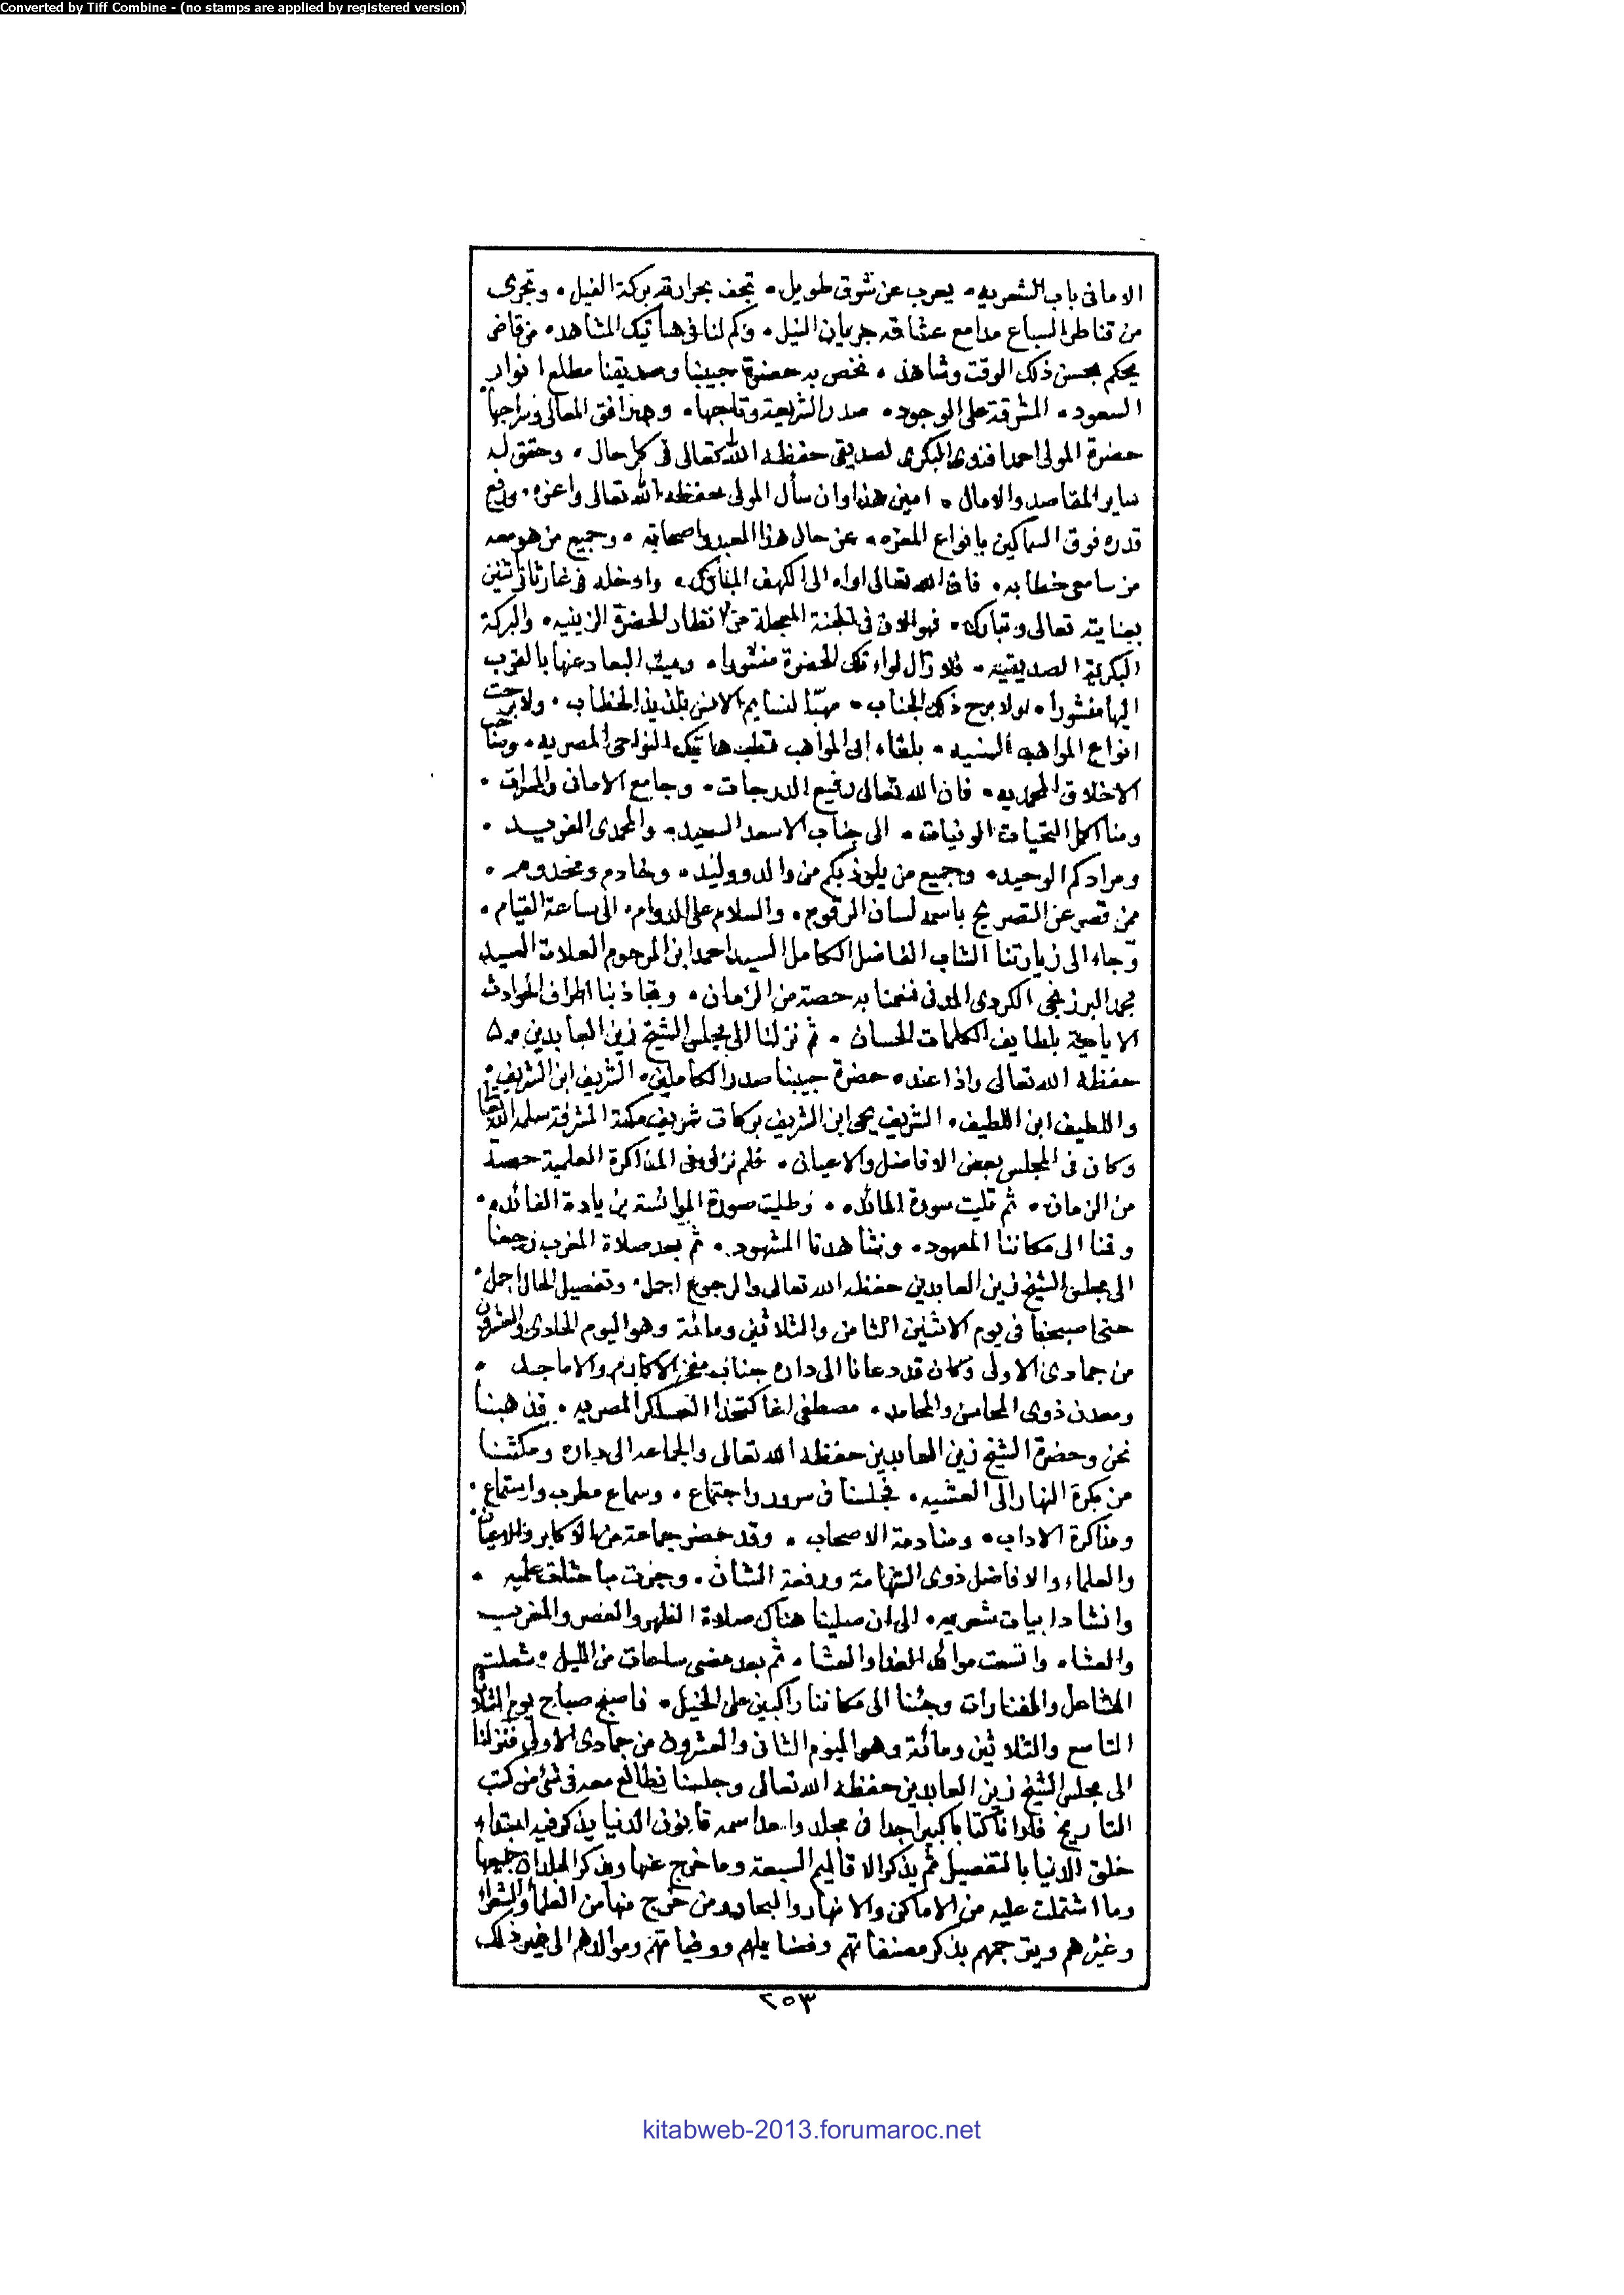 Converted by Tiff Combine - (no stamps are applied by registered version)
الامانى باب الشعريه . يعرب عن شوق طويل . تجف بحرارته بركة الفيل . وتجرى
من قناطر السباع مدامع عشاقه جريان النيل . وكم لنا فى هاتيك المشاهد . من قاض
يحكم بحسن ذلك الوقت وشاهد . نخص به حضرة حبيبنا وصديقنا مطلع انوار
السعود . المشرقة على الوجود . صدر الشريعة وتاجها . وبدر افق المعالى وسراجها
حضرة المولى احمد افندى البكرى الصديقى حفظه الله تعالى فى كل حال . وحقق له
ساير المقاصد والامال . امين هذا وان سأل المولى حفظه الله تعالى واعزه . ورفع
قدره فوق السماكين بانواع المعزه . عن حال هذا العبد واصحابه . وجميع من هو معه
من سامعى خطابه . فان الله تعالى اواه الى الكهف المبارك . وادخله فى غار ثانى اثنين
بعنايته تعالى وتبارك . فهو الان فى الجنة المعجلة من انظار الحضرة الزينيه . والبركة
البكرية الصديقيه . فلا زال لواء تلك الحضرة منشورا . وميت البعاد عنها بالقرب
اليها منشورا . ولا برح ذلك الجناب . مهبا لنسايم الانس بلذيذ الخطاب . ولا برحت
انواع المواهب السنيه . بلقاء ابى المواهب قطب هاتيك النواحى المصريه . وصاحب
الاخلاق المحمديه . فان الله تعالى رفيع الدرجات . وجامع الامانى والمرات .
ومنا اكمل التحيات الوفيات . الى جناب الاسعد السعيد . والمحمدى الفريد .
ومرادكم الوحيد . وجميع من يلوذ بكم من والد ووليد . وخادم ومخدوم .
ممن قصر عن التصريح باسمه لسان المرقوم . والسلام على الدوام . الى ساعة القيام .
وجاء الى زيارتنا الشاب الفاضل الكامل السيد احمد ابن المرحوم العلامة السيد
محمد البرزنجى الكردى المدنى فنعمنا به حصة من الزمان . وتجاذبنا اطراف الحوادث
الايامية بلطايف الكلمات الحسان . ثم نزلنا الى مجلس الشيخ زين العابدين
حفظه الله تعالى واذا عنده حضرة حبيبنا صدر الكاملين . الشريف ابن الشريف .
واللطيف ابن اللطيف . الشريف يحيى ابن الشريف بركات شريف مكة المشرفة سلمه الله تعالى
وكان فى المجلس بعض الافاضل والاعيان . فلم نزل فى المذاكرة العلمية حصة
من الزمان . ثم تليت سورة المائده . وطليت صورة الموانسة بزيادة الفائده .
وقمنا الى مكاننا المعهود . وتشاهدنا المشهود . ثم بعد صلاة المغرب رجعنا
الى مجلس الشيخ زين العابدين حفظه الله تعالى والرجوع اجمل . وتفصيل الحال اجمل .
حتى اصبحنا فى يوم الاثنين الثامن والثلاثين ومائة وهو اليوم الحادى والعشرون
من جمادى الاولى وكان قد دعانا الى داره جناب مفخر الاكابر والاماجد .
ومعدن ذوى المحاسن والمحامد . مصطفى اغا كتخدا العساكر المصريه . فذهبنا
نحن وحضرة الشيخ زين العابدين حفظه الله تعالى والجماعه الى داره ومكثنا
من بكرة النهار الى العشيه . فجلسنا فى سرور واجتماع . وسماع مطرب واستماع .
ومذاكرة الاداب . ومنادمة الاصحاب . وقد حضر جماعة من الاكابر والاعيان .
والعلماء والافاضل ذوى الشهامة ورفعة الشان . وجرت مباحثات علميه .
وانشاد ابيات شعريه . الى ان صلينا هناك صلاة الظهر والعصر والمغرب
والعشاء وانسقت موائد الغدا والعشا . ثم بعد مضى ساعات من الليل . شعلت
المشاعل والفنارات وجئنا الى مكاننا راكبين على الخيل . فاصبح صباح يوم الثلاثا
التاسع والثلاثين ومائة وهو اليوم الثانى والعشرون من جمادى الاولى فنزلنا
الى مجلس الشيخ زين العابدين حفظه الله تعالى وجلسنا نطالع معه فى شئ من كتب
التاريخ فاورانا كتابا كبيرا جدا فى مجلد واحد اسمه قانون الدنيا يذكر فيه ابتداء
خلق الدنيا بالتفصيل ثم يذكر الاقاليم السبعة وما خرج عنها ويذكر البلدان جميعها
وما اشتملت عليه من الاماكن والانهار والبحار ومن خرج منها من العلماء والشعراء
وغيرهم ويترجمهم بذكر مصنفاتهم وفضايلهم ووفياتهم وموالدهم الى غير ذلك
٢٥٣
kitabweb-2013.forumaroc.net